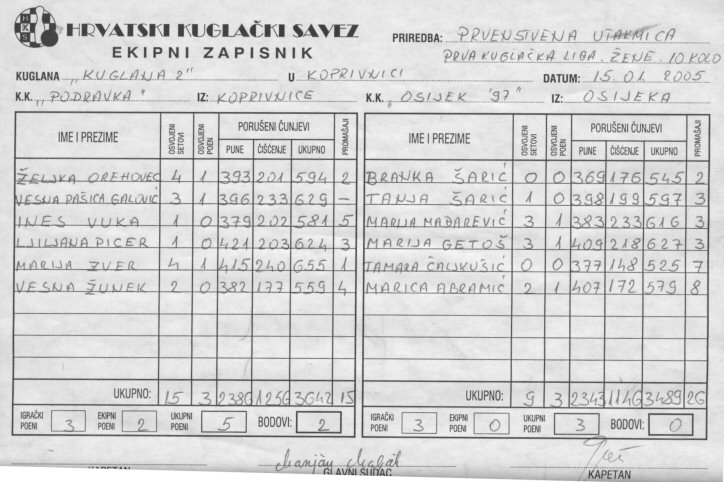 HKS HRVATSKI KUGLAČKI SAVEZ
EKIPNI ZAPISNIK
PRIREDBA: PRVENSTVENA UTAKMICA
PRVA KUGLAČKA LIGA. ŽENE. 10 KOLO
KUGLANA „KUGLANA 2" U KOPRIVNICI DATUM: 15.01.2005
K.K. „PODRAVKA" IZ: KOPRIVNICE K.K. „OSIJEK '97" IZ: OSIJEKA
IME I PREZIME OSVOJENI SETOVI OSVOJENI POEN PORUŠENI ČUNJEVI PUNE ČIŠĆENJE UKUPNO PROMAŠAJI IME I PREZIME OSVOJENI SETOVI OSVOJENI POEN PORUŠENI ČUNJEVI PUNE ČIŠĆENJE UKUPNO PROMAŠAJI
ŽELJKA OREHOVEC 4 1 393 201 594 2 BRANKA ŠARIĆ 0 0 369 176 545 2
VESNA PAŠICA GALOVIĆ 3 1 396 233 629 – TANJA ŠARIĆ 1 0 398 199 597 3
INES VUKA 1 0 379 202 581 5 MARIJA MAĐAREVIĆ 3 1 383 233 616 3
LJILJANA PICER 1 0 421 203 624 3 MARIJA GETOŠ 3 1 409 218 627 3
MARIJA ZVER 4 1 415 240 655 1 TAMARA ČALJKUŠIĆ 0 0 377 148 525 7
VESNA ŽUNEK 2 0 382 177 559 4 MARICA ABRAMIĆ 2 1 407 172 579 8
UKUPNO: 15 3 2386 1256 3642 15 UKUPNO: 9 3 2343 1146 3489 26
IGRAČKI POENI 3 EKIPNI POENI 2 UKUPNI POENI 5 BODOVI: 2 IGRAČKI POENI 3 EKIPNI POENI 0 UKUPNI POENI 3 BODOVI: 0
KAPETAN GLAVNI SUDAC KAPETAN